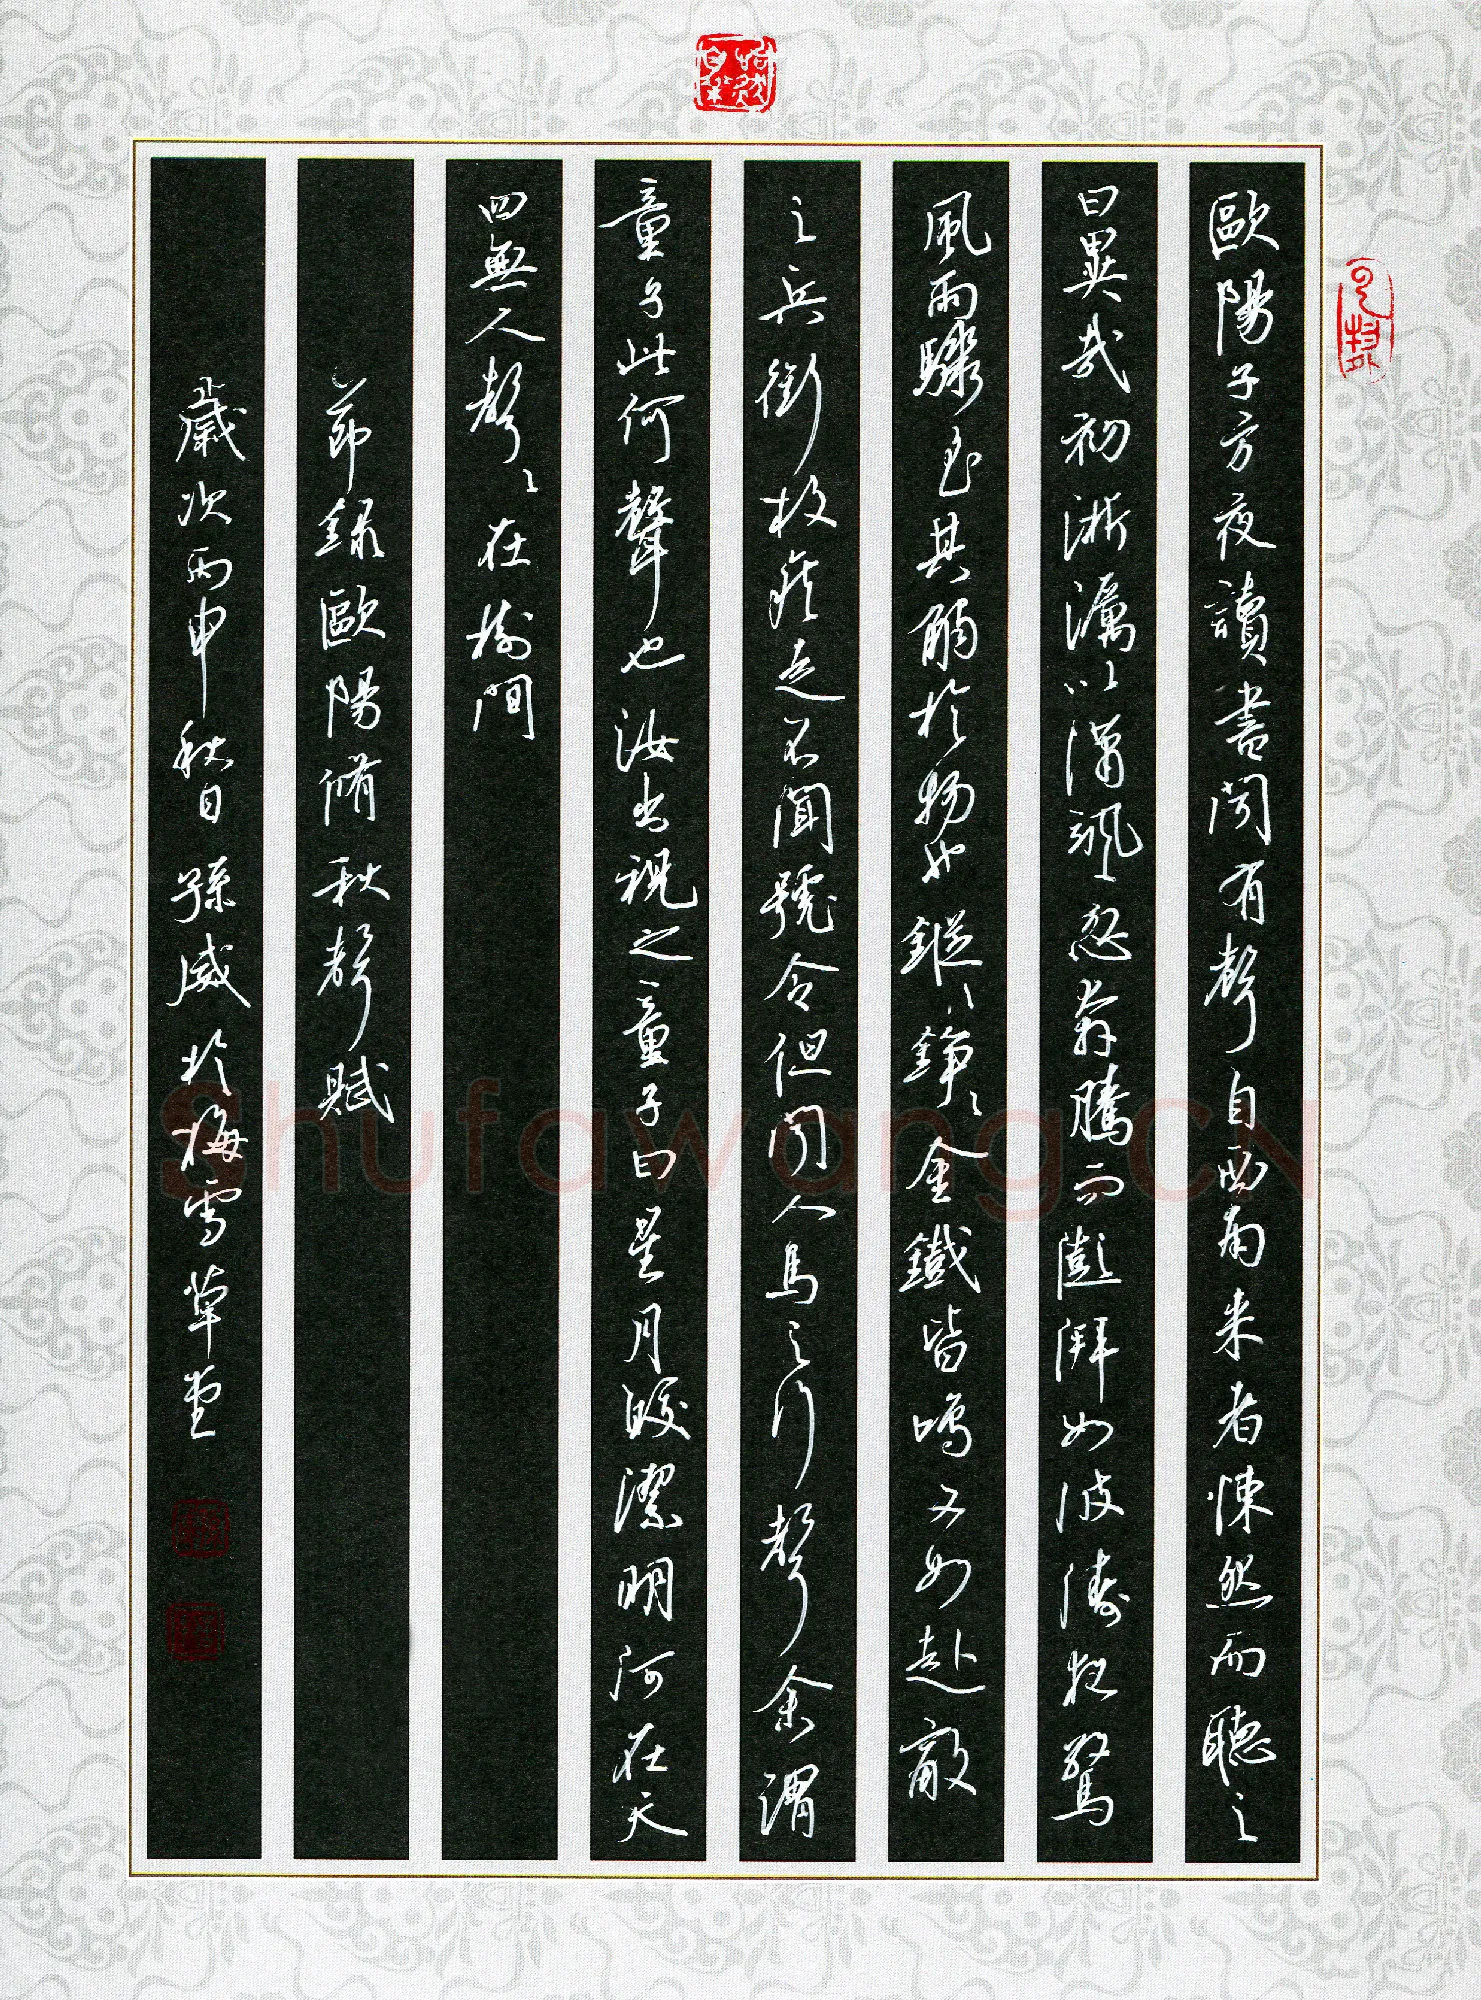 歐陽子方夜讀書聞有聲自西南來者悚然而聽之
曰異哉初淅瀝以瀟颯忽奔騰而澎湃如波濤夜驚
風雨驟至其觸於物也鏦〻錚〻金鐵皆鳴又如赴敵
之兵銜枚疾走不聞號令但聞人馬之行聲余謂
童子此何聲也汝出視之童子曰星月皎潔明河在天
四無人聲〻在樹間
節錄歐陽脩秋聲賦
歲次丙申秋日孫威於梅雪草堂
Shufawang.CN